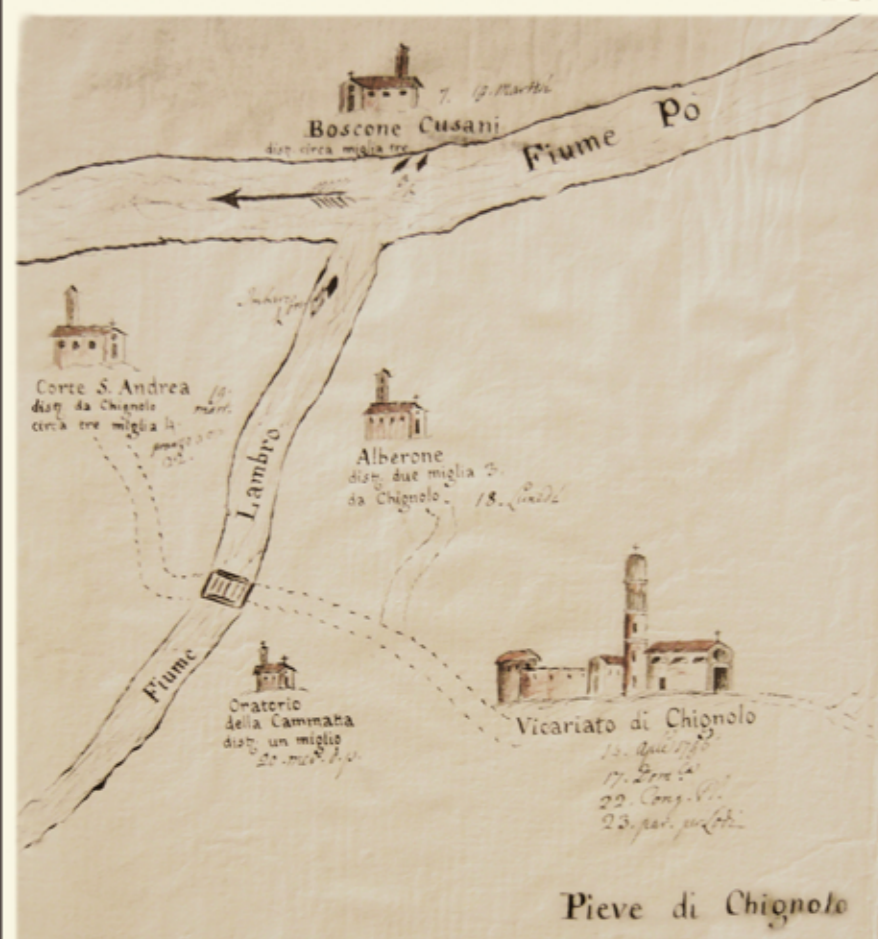 7. 19. Marteí
Boscone Cusani
dist. circa miglia tre
Fiume Pò
Corte S. Andrea
dist. da Chignolo
circa tre miglia 4.
19. mart.
Alberone
dist. due miglia 3.
da Chignolo
18. Lunedì
Lambro
Fiume
Oratorio
della Cammatta
dist. un miglio
Vicariato di Chignolo
17. Dom.ca
22. Cong.
23. par. per Lodi
Pieve di Chignolo